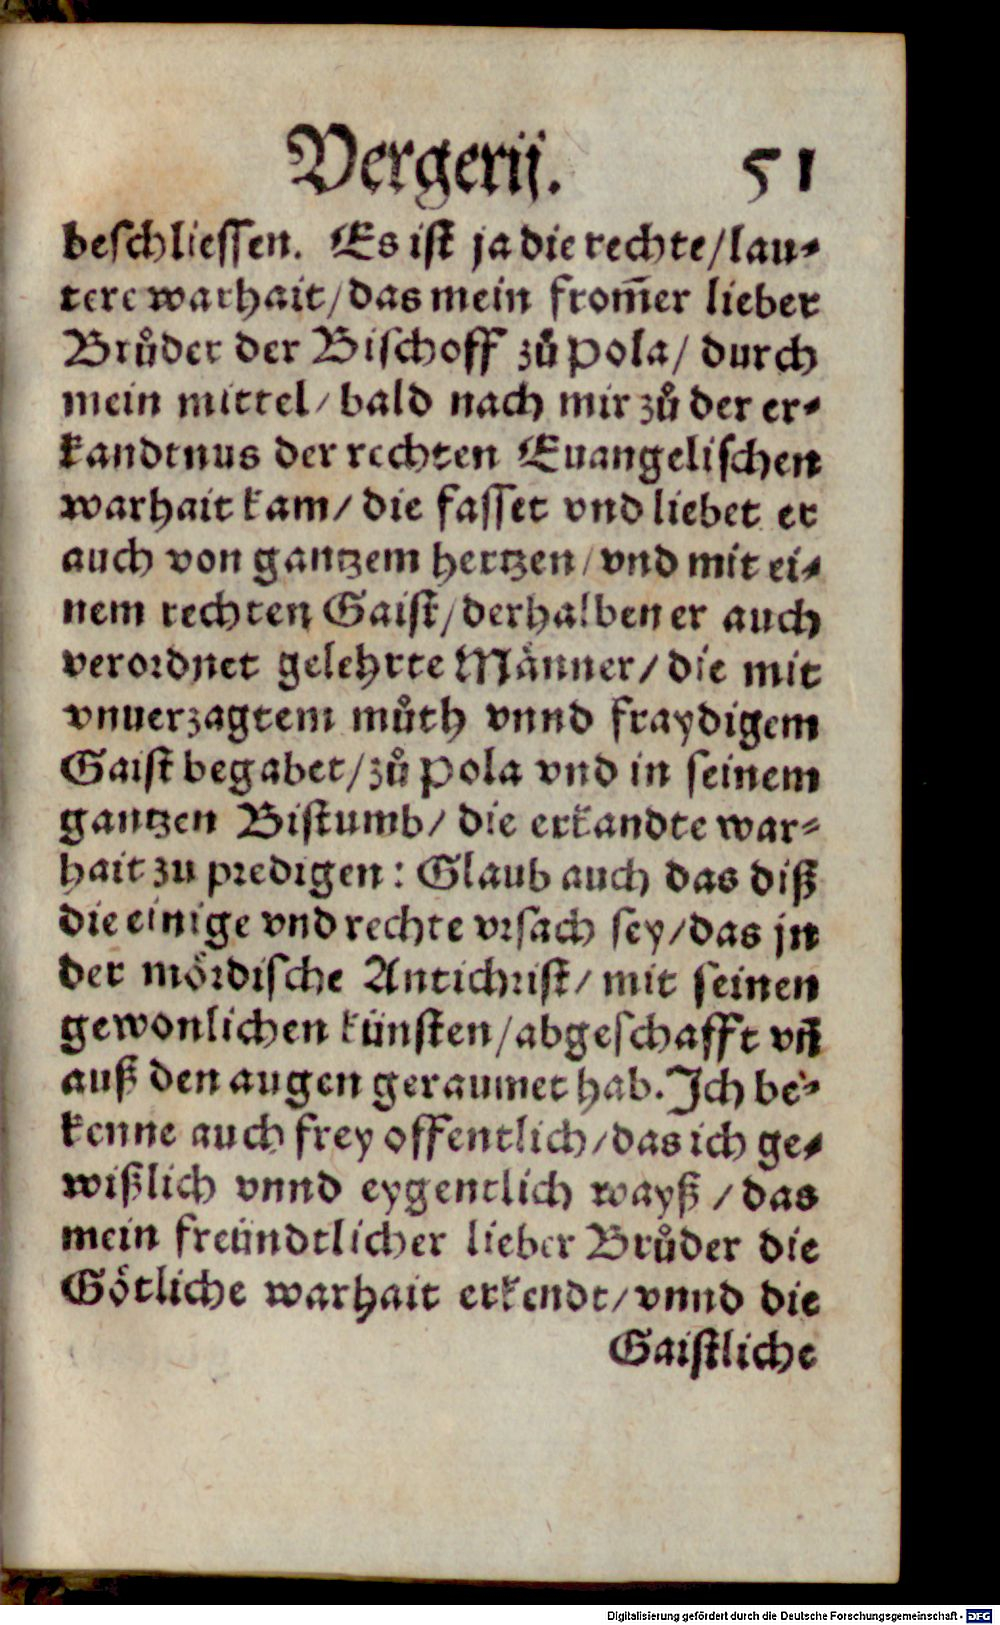 Vergerij. 51
beschliessen. Es ist ja die rechte/lau-
tere warhait/das mein from̃er lieber
Brůder der Bischoff zů Pola/ durch
mein mittel/ bald nach mir zů der er-
kandtnus der rechten Euangelischen
warhait kam/ die fasset vnd liebet er
auch von gantzem hertzen/vnd mit ei-
nem rechten Gaist/derhalben er auch
verordnet gelehrte Männer/ die mit
vnuerzagtem můth vnnd fraydigem
Gaist begabet/zů Pola vnd in seinem
gantzen Bistumb/ die erkandte war-
hait zu predigen: Glaub auch das diß
die einige vnd rechte vrsach sey/das jn
der mördische Antichrist/ mit seinen
gewonlichen künsten/abgeschafft vñ
auß den augen geraumet hab. Ich be-
kenne auch frey offentlich/das ich ge-
wißlich vnnd eygentlich wayß/das
mein freündtlicher lieber Brůder die
Götliche warhait erkendt/vnnd die
Gaistliche
Digitalisierung gefördert durch die Deutsche Forschungsgemeinschaft - DFG